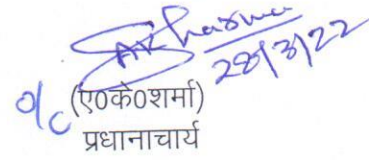 AKSharma
28/3/22
o/c (ए0के0शर्मा)
प्रधानाचार्य